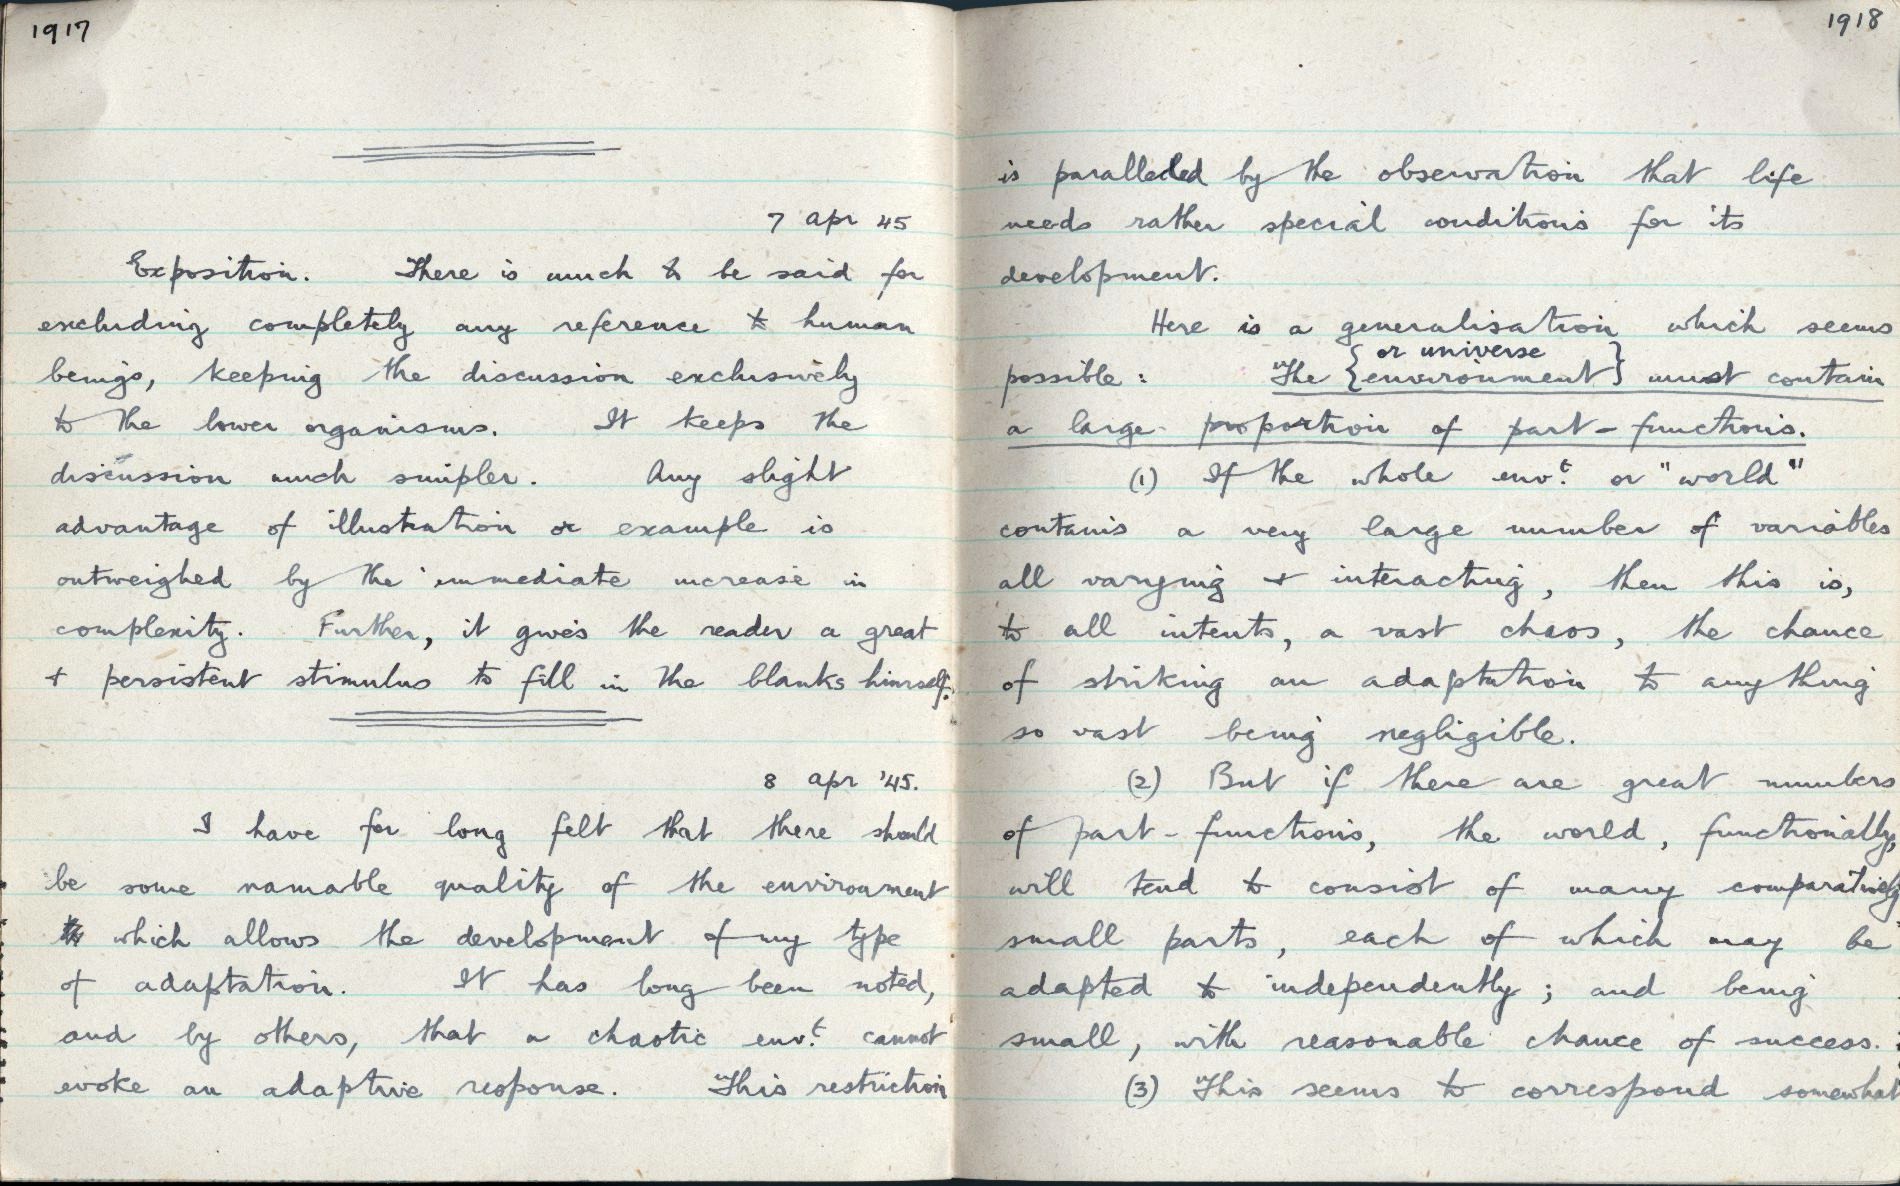 1917
7 Apr 45
Exposition. There is much to be said for
excluding completely any reference to human
beings, keeping the discussion exclusively
to the lower organisms. It keeps the
discussion much simpler. Any slight
advantage of illustration or example is
outweighed by the immediate increase in
complexity. Further, it gives the reader a great
+ persistent stimulus to fill in the blanks himself.
8 Apr '45.
I have for long felt that there should
be some namable quality of the environment
which allows the development of my type
of adaptation. It has long been noted,
and by others, that a chaotic env.t cannot
evoke an adaptive response. This restriction
1918
is paralleled by the observation that life
needs rather special conditions for its
development.
Here is a generalisation which seems
or universe
possible: The {environment} must contain
a large proportion of part-functions.
(1) If the whole env.t or "world"
contains a very large number of variables
all varying + interacting, then this is,
to all intents, a vast chaos, the chance
of striking an adaptation to anything
so vast being negligible.
(2) But if there are great numbers
of part-functions, the world, functionally,
will tend to consist of many comparatively
small parts, each of which may be
adapted to independently; and being
small, with reasonable chance of success.
(3) This seems to correspond somewhat